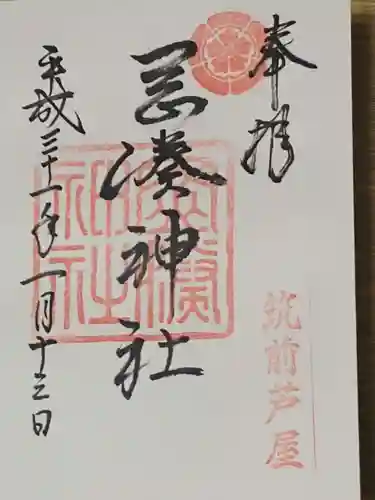 奉拝
岡湊神社
平成三十一年一月十三日
筑前芦屋
岡湊神社